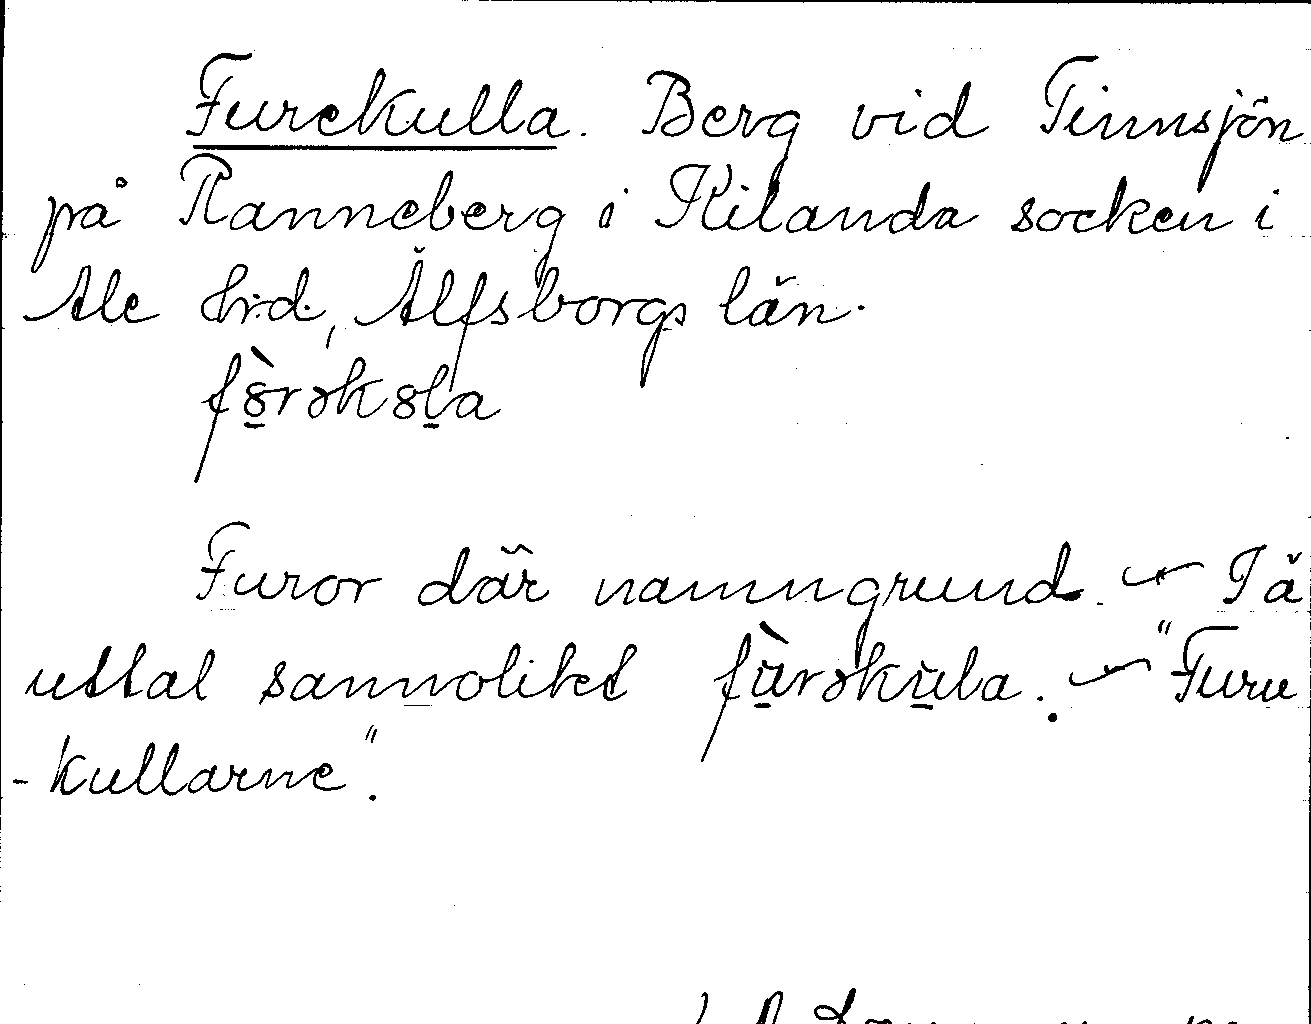 Furekulla. Berg vid Tinnsjön
på Ranneberg i Kilanda socken i
Ale hrd., Älfsborgs län.
fò̱rəko̱la
Furor där namngrund. — I ä
uttal sannolikt fù̱rəku̱la. — "Furu
-kullarne".